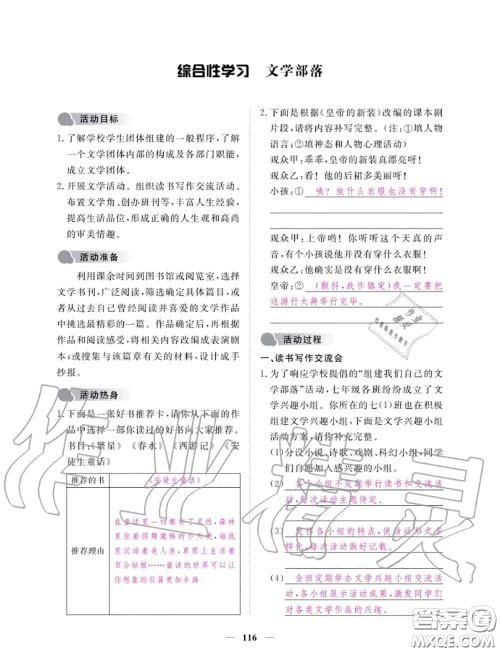 综合性学习　文学部落
活动目标
1.了解学校学生团体组建的一般程序,了解一
个文学团体内部的构成及各部门职能,
成立文学团体。
2.开展文学活动。组织读书写作交流活动、
布置文学角、创办班刊等,丰富人生经验,
提高生活品位,形成正确的人生观和高尚
的审美情趣。
活动准备
利用课余时间到图书馆或阅览室,选择
文学书刊,广泛阅读,筛选确定具体篇目,或
者从过去自己曾经阅读并喜爱的文学作品
中挑选最精彩的一篇。作品确定后,再根据
作品和阅读感受,将相关内容改编成表演剧
本;或搜集与该篇章有关的材料,设计成手
抄报。
活动热身
1.下面是一张好书推荐卡,请你从下面的作
品中选择一部你读过的好书向大家推荐。
书目:《繁星》《春水》《西游记》《安
徒生童话》
推荐的书
《安徒生童话》
推荐理由
在童话里一切都有了灵性,森林
里住着挥舞魔棒的小天使,海底
里沉睡着美人鱼,草原上生活着
百合姑娘……童话的世界可以让
你想象的羽翼更加丰满
2.下面是根据《皇帝的新装》改编的课本剧
片段,请将内容补写完整。(注:①填人物
语言;②填神态和人物心理活动)
观众甲:乖乖,皇帝的新装真漂亮呀!
观众乙:他的后裾多美丽呀!
小孩:① 咦?他什么衣服也没有穿啊!
观众甲:上帝哟! 你听听这个天真的声
音,有个小孩说他并没有穿什么衣服!
观众乙:他确实是没有穿什么衣服呀!
皇帝:② (颤抖,故作镇定)我一定要把
这游行大典举行完毕。
活动过程
一、读书写作交流会
1.为了响应学校提倡的“组建我们自己的文
学部落”活动,七年级各班纷纷成立了文
学兴趣小组。你所在的七(1)班也在积极
组建文学兴趣小组,请你写一份文学小组
活动方案,请你补充完整。
(1)分设小说、诗歌、戏剧、科幻小组,同学们
根据兴趣加入感兴趣的小组。
(2) 各个小组不定期举行读书知交流活
动,每次活动主题待定。
(3) 根据各小组的特点,使活动形式多
样化,每次活动做好记载。
(4) 全班定期举办文学兴趣小组交流活
动,各小组展示活动成果,激发同学们
对各类文学作品的兴趣。
116
答案圈
MXQE.COM